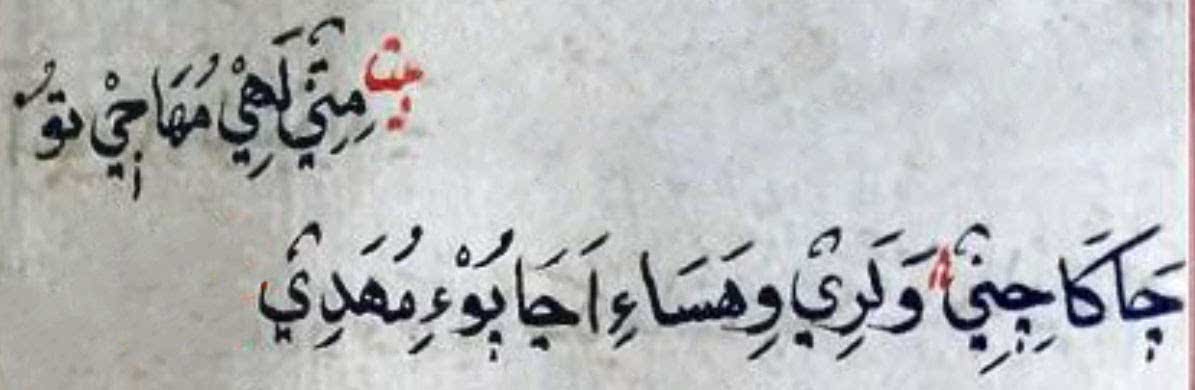 بيت مِتِيْ لَهِيْ مُهَاجِيْ توُ
جَاكَا جِنِيْ وَكَرِيْ وِهَسَاءِ اَجَا بُوْءِ مُهَدِيْ